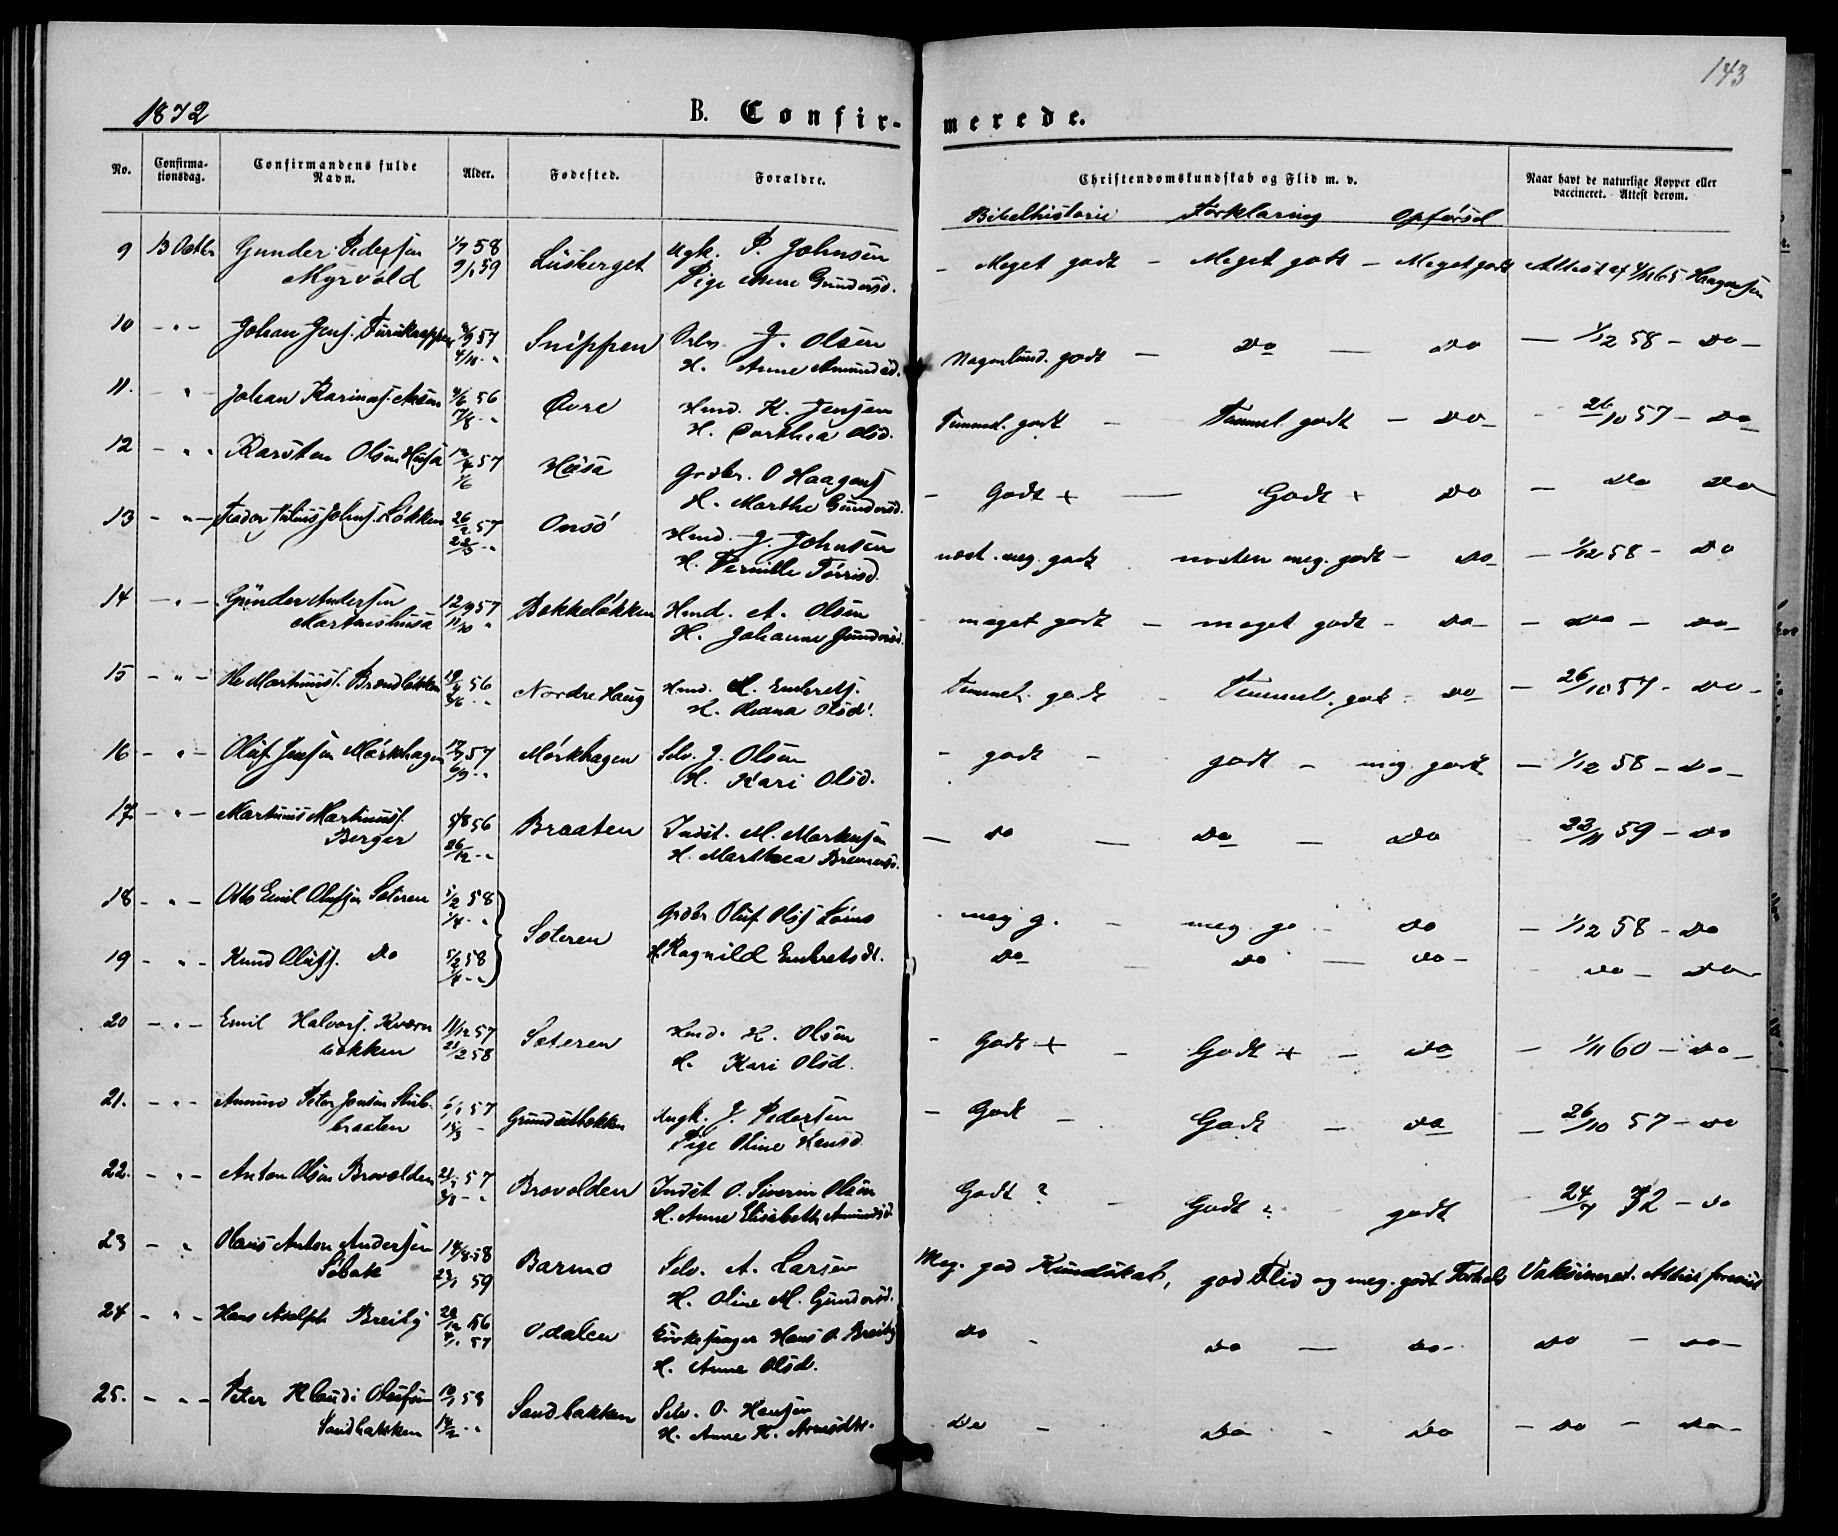 143
1872 B. Confirmerede.
No. Confirmationsdag. Confirmandens fulde Navn. Alder. Fødested. Forældre. Christendomskundskab og Flid m. v. Naar havt de naturlige Kopper eller vaccineret. Attest derom.
Bibelhistorie Forklaring Opførsel
9 13 Octbr Gunder Pedersen 1/7 58 Lusberget Ugk. P. Johnsen - Meget godt - Meget godt - Meget godt Attest af 4/11 65 Haagensen
Myrvold 9/1 59 Pige Anne Gundersd.
10 - " - Johan Jens. 57 Snippen J. Olsen godt - Do - Do - 1/12 58 - Do -
4/10 - " H. Anne Amundsd.
11. - " - Johan Karinus. 4/6 56 Øvre Hmd. K. Jensen Temmel. godt - Temmel. godt - Do - - 26/10 57 - Do
17/8 - " H. Dorthea Olsd.
12 - " - Karsten Olsen Husa 57 Husa Grdbr. O Haagens - Godt + - Godt + Do - Do Do
1/6 H. Marthe Gundersd.
13 - " - Johns. Løkken 26/2 57 Onsø Hmd. J. Johnsen næst. meg. godt næsten meg. godt - Do - 1/12 58 - Do
22/3 - " H. Pernille Tørrisd.
14 - " - Gunder Andersen 12/9 57 Bekkeløkken Hmd. A. Olsen - meget godt - meget godt - Do - - Do - Do -
Martneshusa 11/10 " H. Johanne Gundersd.
15 - " - Ole Martinus. 19/4 56 Nordre Haug Hmd. M. Embrets. Temmel. godt - Temmel. godt - Do - 26/10 57 - Do -
" H. Oleana Olsd.
16 - " - Oluf Jensen Mørkhagen 57 Mørkhagen Selv. J. Olsen - godt - godt - meg. godt - 1/12 58 - Do -
6/9 - " H. Kari Olsd.
17. - " - Martinus Martinus. 5/8 56 Braaten Indst. M. Martinsen - Do - Do - Do - 22/11 59 - Do
Berger 26/12 - " H. Marthea
18 - " - Otto Emil Olufsen Sæteren 5/2 58 Sæteren Grdbr Oluf Ols. - meg g. - meg. g. - Do - 1/12 58 - Do
1/4 - "
19 - " - Knud Olufs. Do 5/2 58 H. Ragnild Embretsdt. Do - Do - Do - - Do - Do -
1/4 - "
20 - " - Emil Halvors. Kværn 11/12 57 Sæteren Hmd. H. Olsen - Godt + - Godt + - Do - 1/11 60 - Do -
bakken 21/2 58 H. Kari Olsd.
21. - " - Peter Jensen Stub- 6/1 57 Ungk. J. Pedersen - Godt - Godt - Do - 26/10 57 - Do
braaten 15/3 - Pige Oline Hansd
22. - " - Anton Olsen Brovolden 57 Brovolden Indst O. Siverin Olsen Godt ? - Godt ? - godt - 24/7 72 - Do
H. Anne Elisabeth Amundsd.
23 - " Hans Anton Andersen 14/8 58 Barmo Selv. A. Larsen Meg. god Kundskab, god Flid og meg. godt Forhold Vaksineret. Attest forevist
Søbak 23/1 59 H. Oline M. Gundersd.
24 - " - Hans Adolph Breiby 28/12 56 Odalen Kirkesanger Hans O. Breiby Do - Do - Do - Do - Do -
4/1 57 H. Anne Olsd.
25. - " - Peter Klaudi Olufsen 10/1 58 Sandbakken Selv. O. Hansen Do - Do - Do - Do - Do -
Sandbakken 14/2 - " H. Anne K.